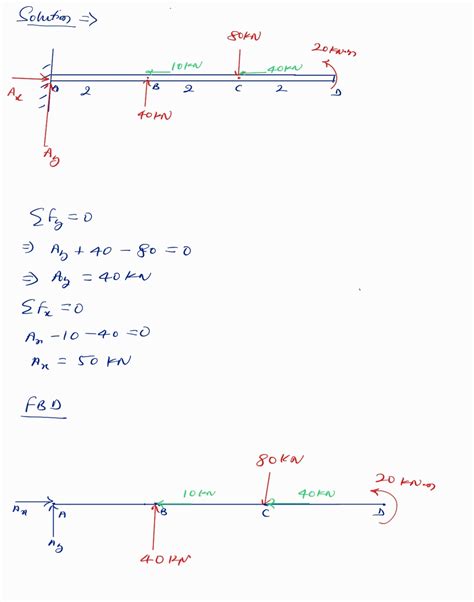 Solution ⇒
80KN
20KNm
10KN
40KN
Ax
A 2 B 2 C 2 D
40KN
Ay
ΣFy = 0
⇒ Ay + 40 - 80 = 0
⇒ Ay = 40KN
ΣFx = 0
Ax - 10 - 40 = 0
Ax = 50 KN
FBD
80KN
20KNm
10KN
40KN
Ax
A B C D
Ay
40KN